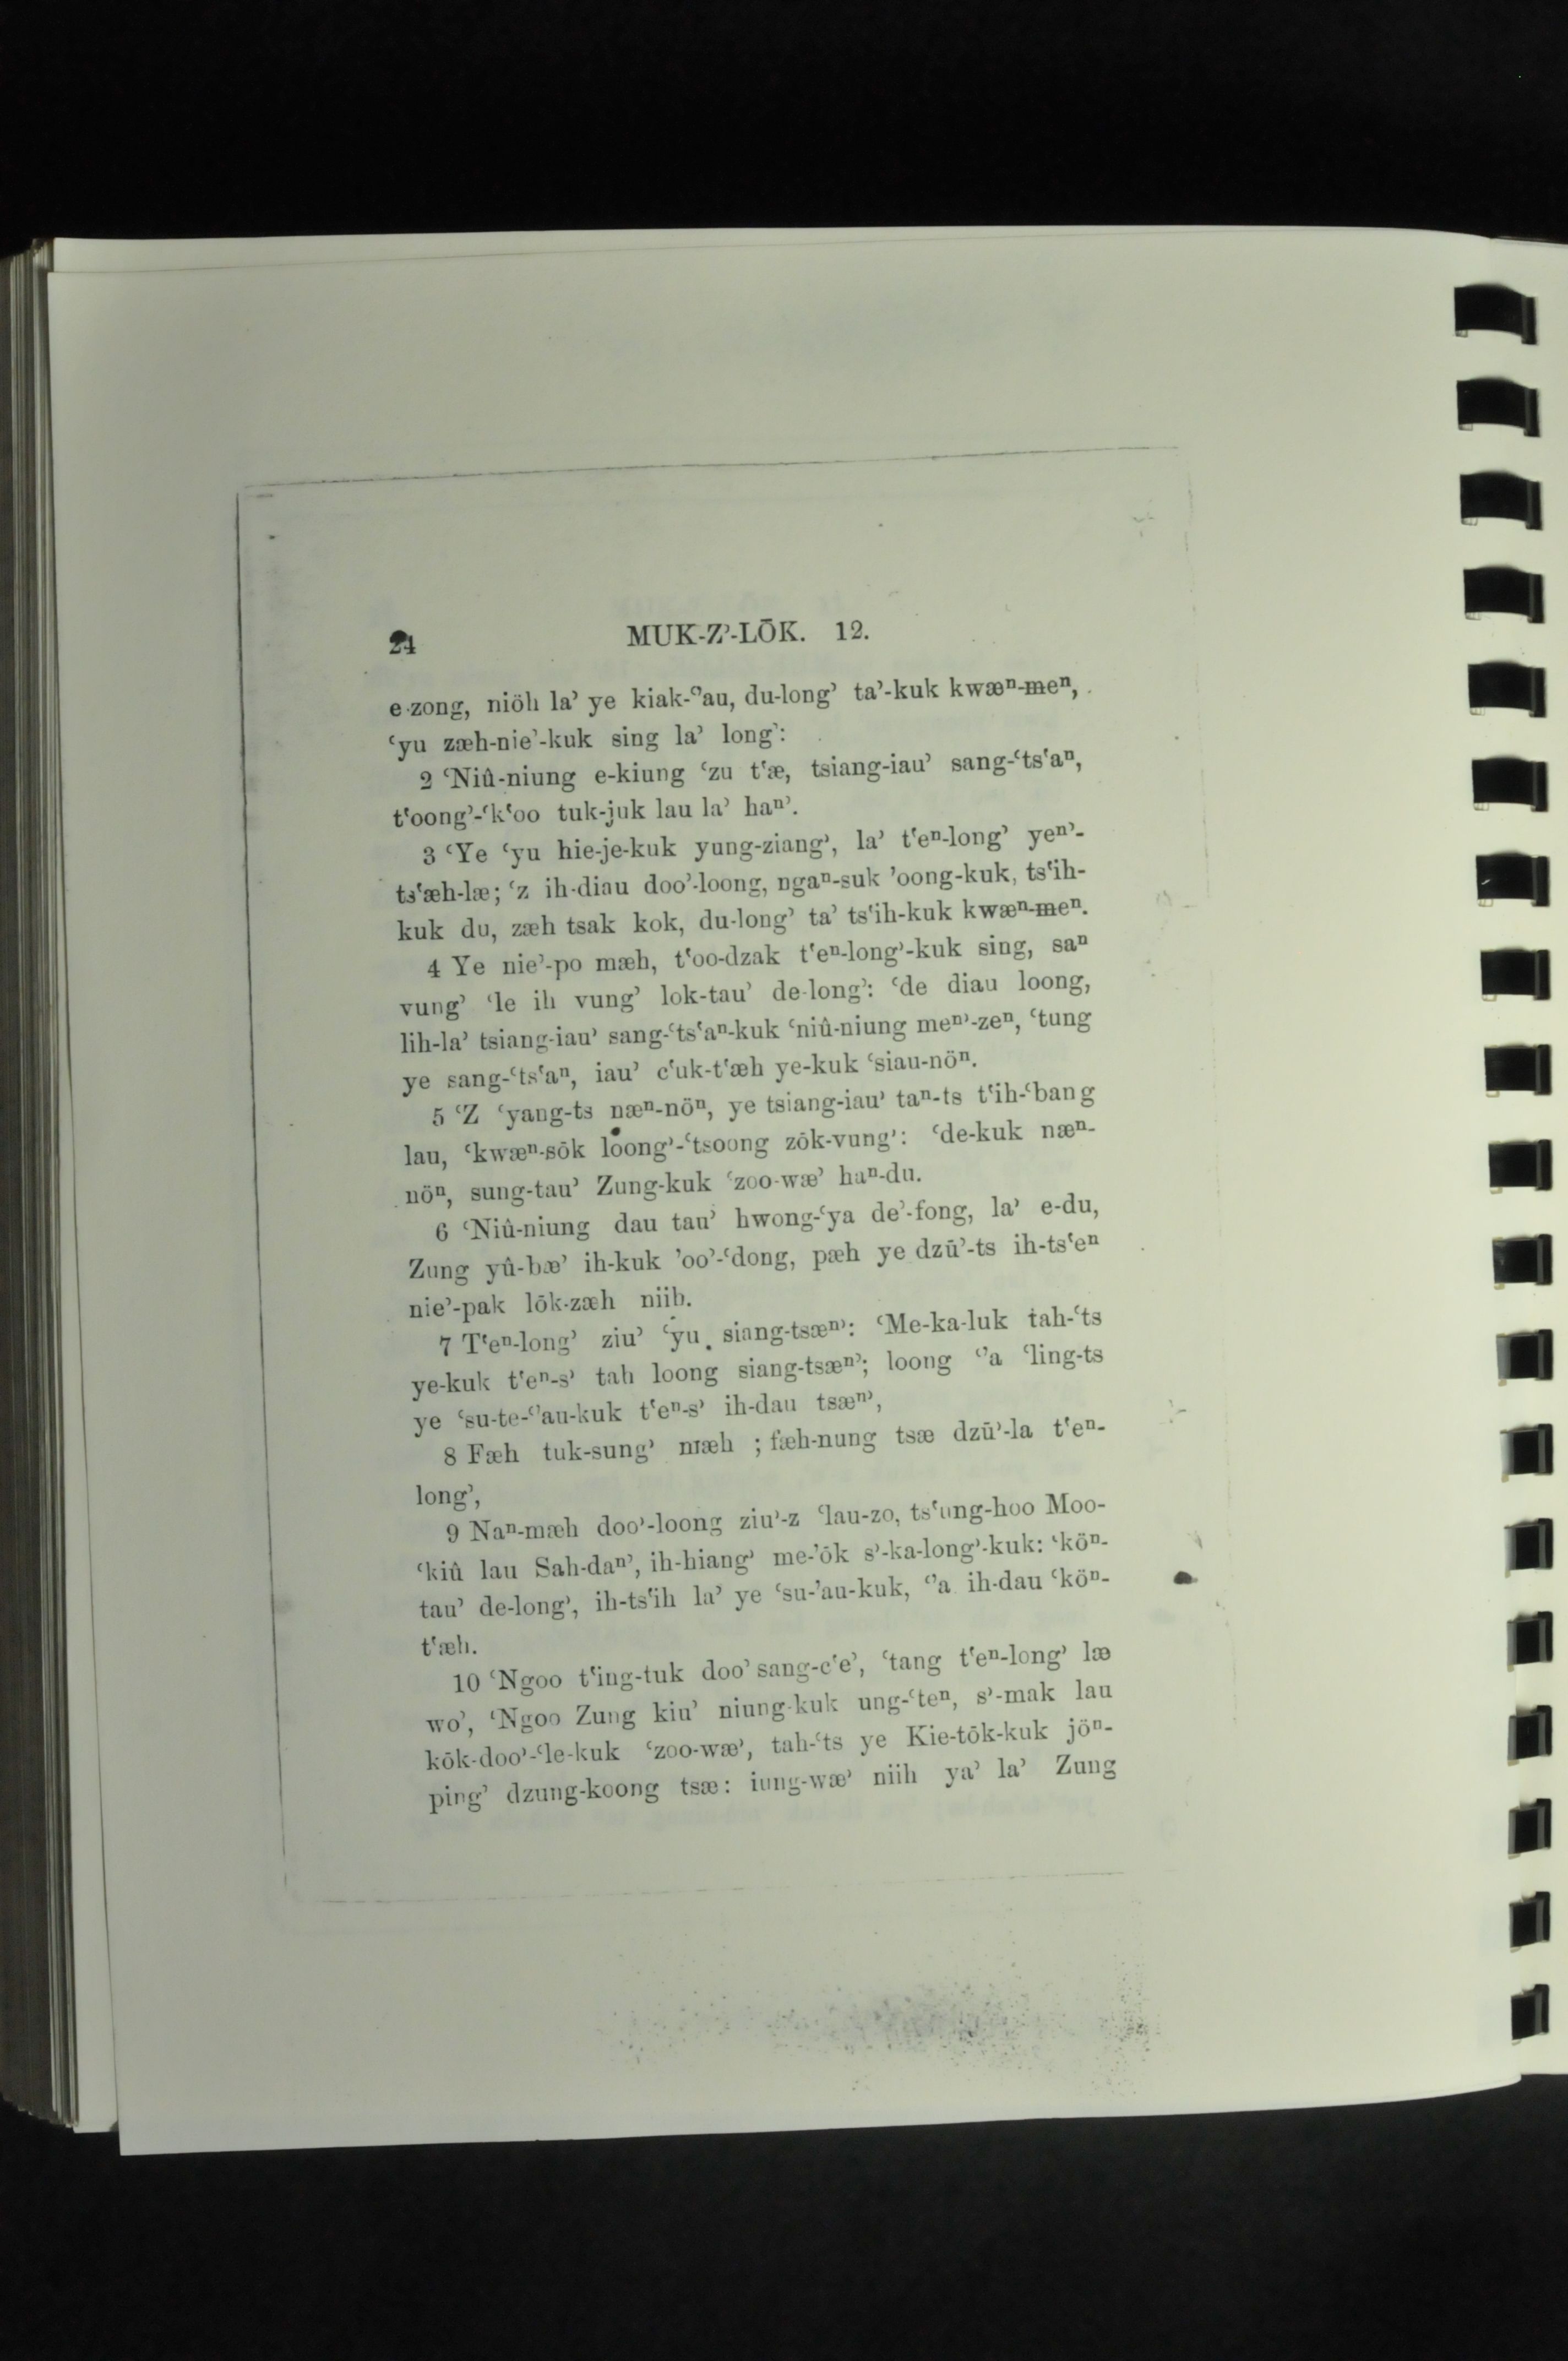 24 MUK-Z’-LŌK. 12.
e-zong, niöh la’ ye kiak-‘’au, du-long’ ta’-kuk kwæⁿ-meⁿ,
‘yu zæh-nie’-kuk sing la’ long’:
2 ‘Niû-niung e-kiung ‘zu t‘æ, tsiang-iau’ sang-‘ts‘aⁿ,
t‘oong’-‘k‘oo tuk-juk lau la’ haⁿ’.
3 ‘Ye ‘yu hie-je-kuk yung-ziang’, la’ t‘eⁿ-long’ yeⁿ’-
ts‘æh-læ; ‘z ih-diau doo’-loong, ngaⁿ-suk ’oong-kuk, ts‘ih-
kuk du, zæh tsak kok, du-long’ ta’ ts‘ih-kuk kwæⁿ-meⁿ.
4 Ye nie’-po mæh, t‘oo-dzak t‘eⁿ-long’-kuk sing, saⁿ
vung’ ‘le ih vung’ lok-tau’ de-long’: ‘de diau loong,
lih-la’ tsiang-iau’ sang-‘ts‘aⁿ-kuk ‘niû-niung meⁿ’-zeⁿ, ‘tung
ye sang-‘ts‘aⁿ, iau’ c‘uk-t‘æh ye-kuk ‘siau-nöⁿ.
5 ‘Z ‘yang-ts næⁿ-nöⁿ, ye tsiang-iau’ taⁿ-ts t‘ih-‘bang
lau, ‘kwæⁿ-sōk loong’-‘tsoong zōk-vung’: ‘de-kuk næⁿ-
nöⁿ, sung-tau’ Zung-kuk ‘zoo-wæ’ haⁿ-du.
6 ‘Niû-niung dau tau’ hwong-‘ya de’-fong, la’ e-du,
Zung yû-bæ’ ih-kuk ’oo’-‘dong, pæh ye dzū’-ts ih-ts‘eⁿ
nie’-pak lōk-zæh niih.
7 T‘eⁿ-long’ ziu’ ‘yu siang-tsæⁿ’: ‘Me-ka-luk tah-‘ts
ye-kuk t‘eⁿ-s’ tah loong siang-tsæⁿ’; loong ‘’a ‘ling-ts
ye ‘su-te-‘’au-kuk t‘eⁿ-s’ ih-dau tsæⁿ’,
8 Fæh tuk-sung’ mæh ; fæh-nung tsæ dzū’-la t‘eⁿ-
long’,
9 Naⁿ-mæh doo’-loong ziu’-z ‘lau-zo, ts‘ung-hoo Moo-
‘kiû lau Sah-daⁿ’, ih-hiang’ me-’ōk s’-ka-long’-kuk: ‘köⁿ-
tau’ de-long’, ih-ts‘ih la’ ye ‘su-’au-kuk, ‘’a ih-dau ‘köⁿ-
t‘æh.
10 ‘Ngoo t‘ing-tuk doo’ sang-c‘e’, ‘tang t‘eⁿ-long’ læ
wo’, ‘Ngoo Zung kiu’ niung-kuk ung-‘teⁿ, s’-mak lau
kōk-doo’-‘le-kuk ‘zoo-wæ’, tah-‘ts ye Kie-tōk-kuk jöⁿ-
ping’ dzung-koong tsæ: iung-wæ’ niih ya’ la’ Zung